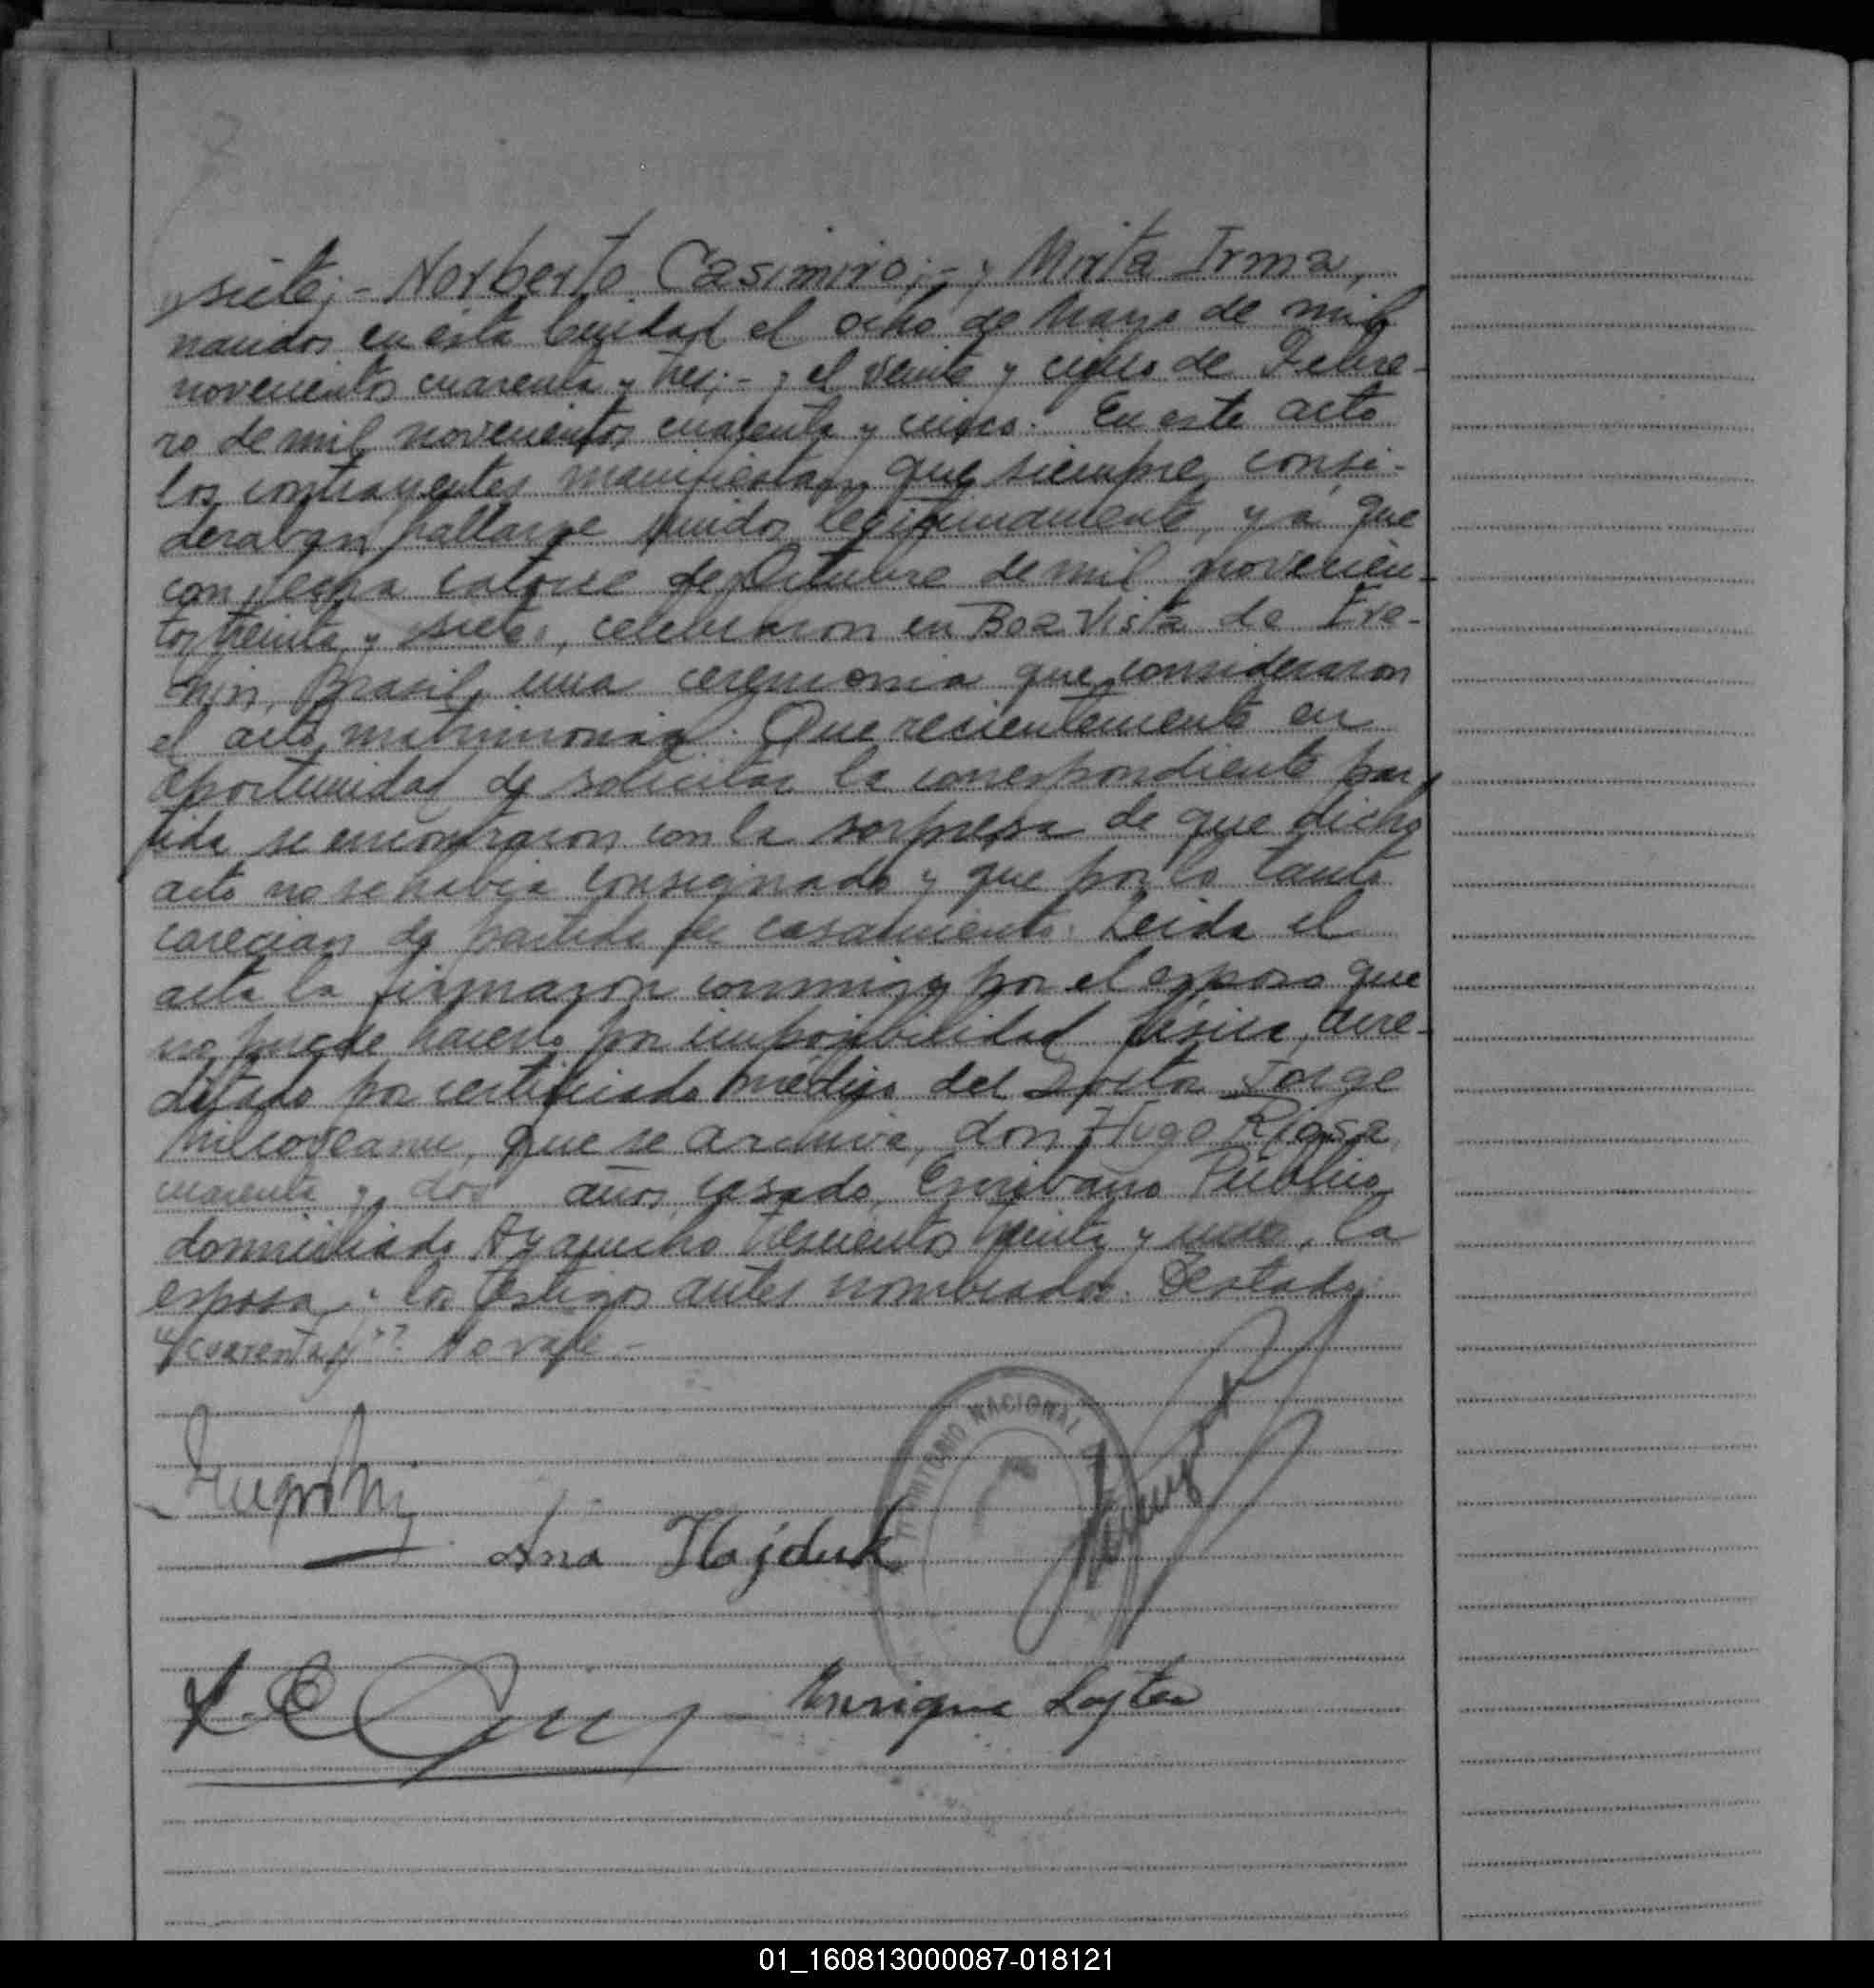 siete; - Norberto Casimiro; - y Mirta Irma,
nacidos en esta Ciudad el ocho de Mayo de mil
novecientos cuarenta y tres; - y el veinte y cinco de Febre-
ro de mil novecientos cuarenta y cinco. En este acto
los contrayentes manifiestan que siempre consi-
deraban hallarse unidos legitimamente, ya que
con fecha catorce de Octubre de mil novecien-
tos treinta y siete, celebraron en Boa Vista de Ere-
chin, Brasil, una ceremonia que consideraron
el acto matrimonial. Que recientemente en
oportunidad de solicitar la correspondiente par
tida se encontraron con la sorpresa de que dicho
acto no se habia consignado y que por lo tanto
carecian de partida de casamiento. Leida el
acta la firmaron conmigo por el esposo que
no puede hacerlo por imposibilidad fisica, acre-
ditado por certificado médico del Doctor Jorge
que se archiva, don Hugo
cuarenta y dos años, casado, Escribano Público
domiciliado Ayacucho trescientos treinta y uno, la
esposa y los testigos antes nombrados. Testado:
"cuarenta y" No vale -
TERRITORIO NACIONAL
Ana Hajduk
Enrique
01_160813000087-018121